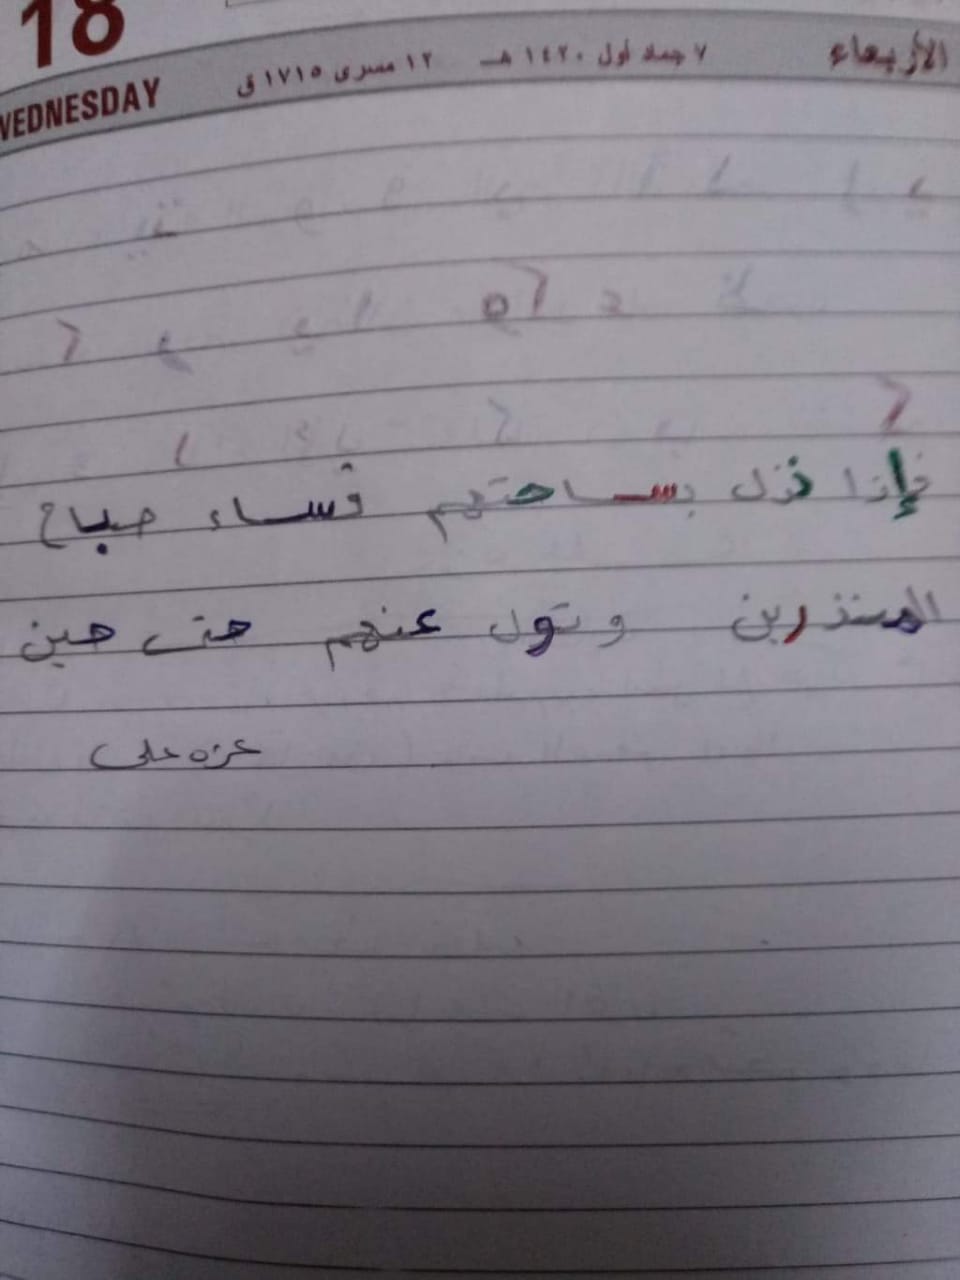 18
WEDNESDAY ١٢ مسرى ١٧١٥ ق ٧ جماد أول ١٤٢٠ هـ الأربعاء
فإذا نزل بساحتهم فساء صباح
المنذرين وتول عنهم حتى حين
عزه على